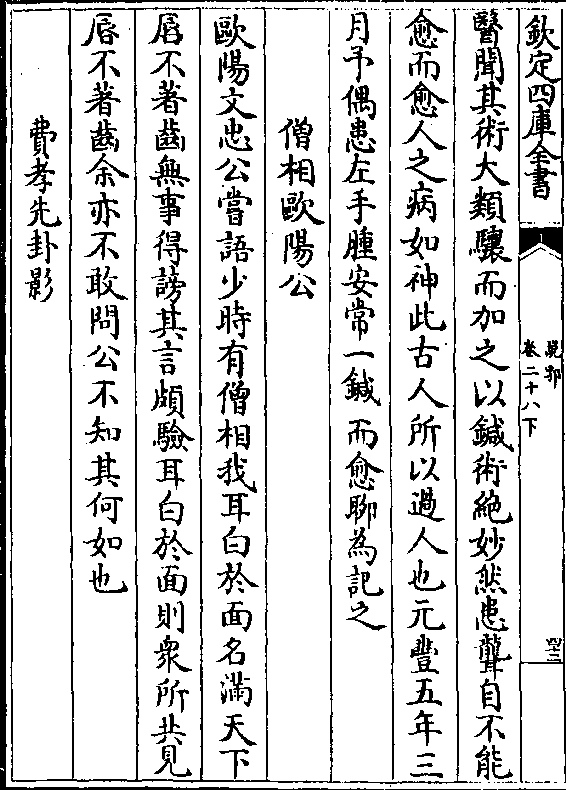 欽定四庫全書
說郛
卷二十八下
四三
醫聞其術大類驤而加之以鍼術絶妙然患聾自不能
愈而愈人之病如神此古人所以過人也元豐五年三
月予偶患左手腫安常一鍼而愈聊為記之
僧相歐陽公
歐陽文忠公嘗語少時有僧相我耳白於面名滿天下
唇不著齒無事得謗其言頗驗耳白於面則衆所共見
唇不著齒余亦不敢問公不知其何如也
費孝先卦影